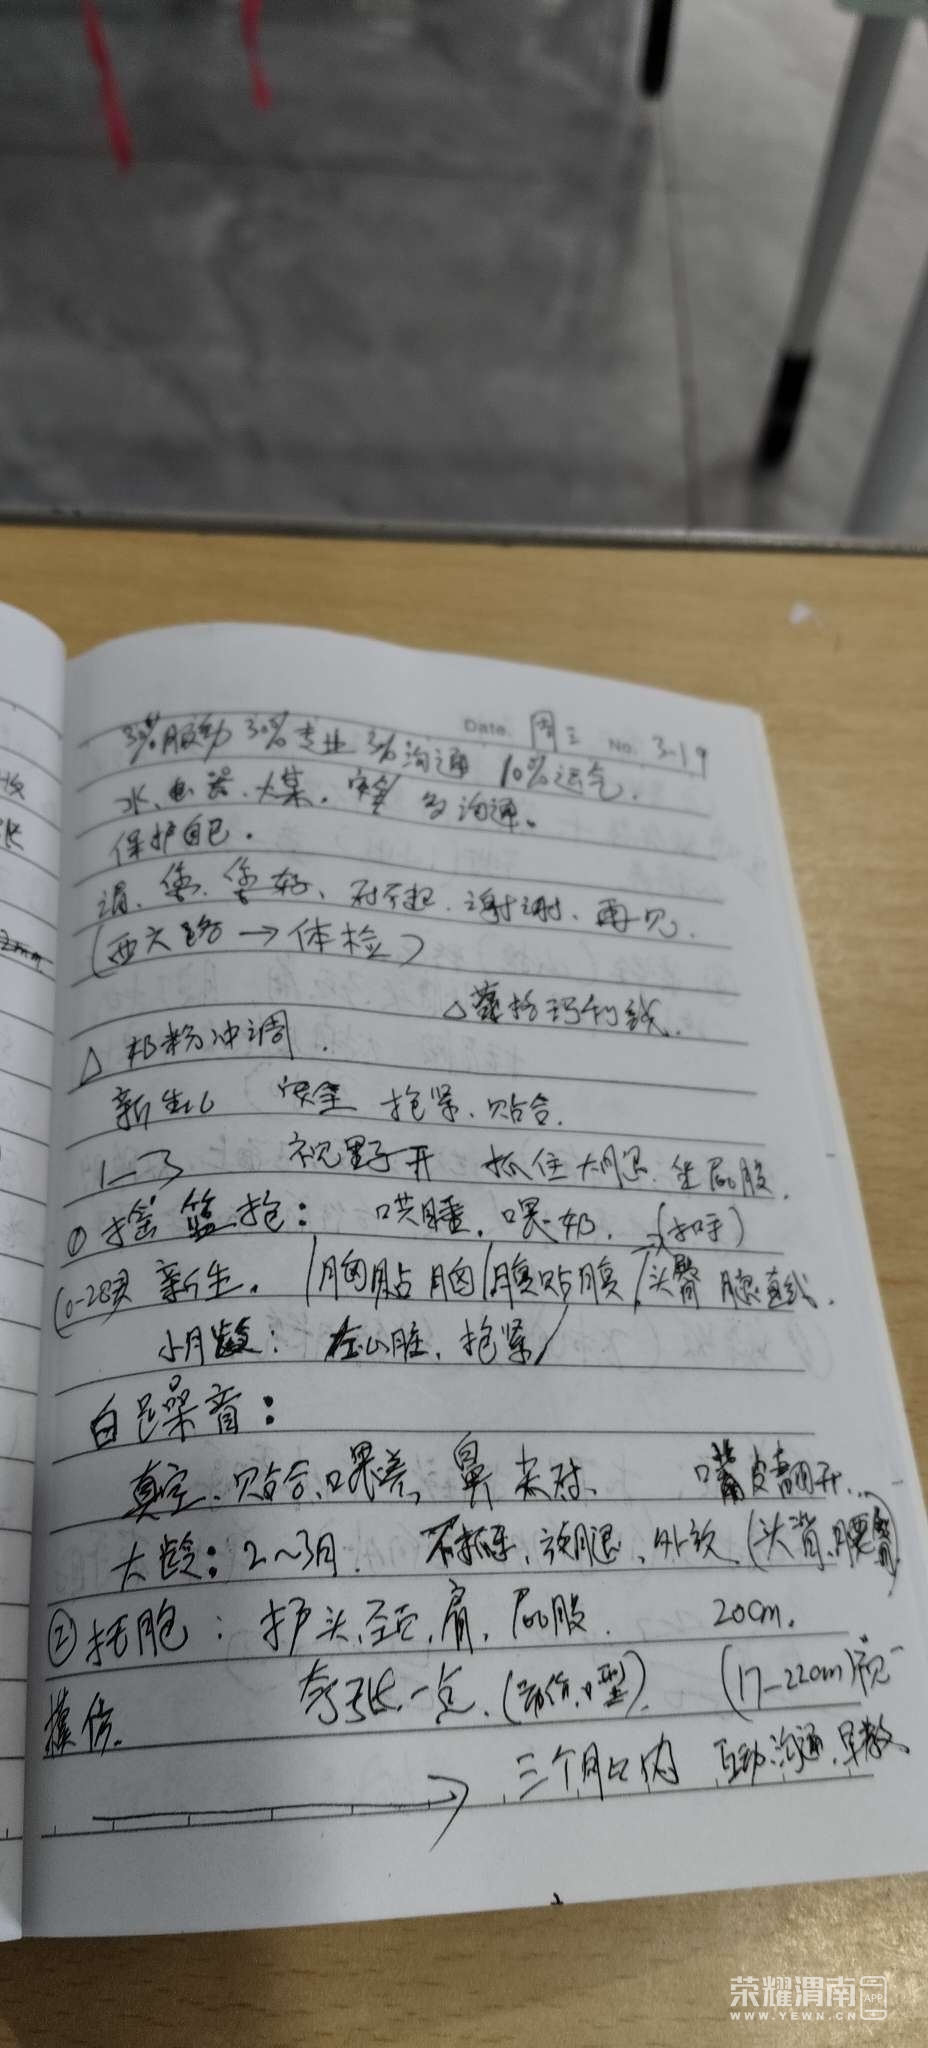 Date. 周三 No. 3-19
30%服务 30%专业 3%沟通 10%运气.
水、电器、火煤. 安全 多沟通。
保护自己.
请、您、您好、对不起、谢谢、再见.
(西六路→体检)
△蒙特玛利线.
△ 奶粉冲调.
新生儿 安全 抱紧、贴合.
1-3 视野开 抓住大腿. 坐屁股.
① 摇篮抱: 哄睡. 喂奶. (扣手)
(0-28天 新生. 胸贴胸 腹贴腹 头臀腿直线.
小月龄: 左心脏. 抱紧
白色噪音:
真空、贴合、嘴 鼻尖对、 嘴皮翻开..
大龄: 2~3月. 放腿、外放. (头背.腰臀)
②托抱: 护头、颈、肩. 屁股. 20cm.
模仿. 夸张一点. (口型). (17-220m)视
三个月以内 互动、沟通、早教、
2mm
荣耀渭南 APP
WWW.YEWN.CN